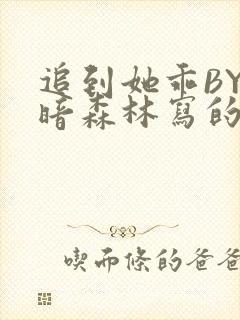 追到她乖BY
暗森林寫的
喫而條的爸爸